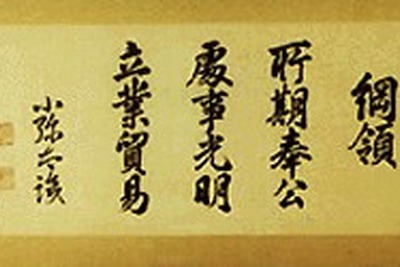 綱領
所期奉公
處事光明
立業貿易
小彌太識